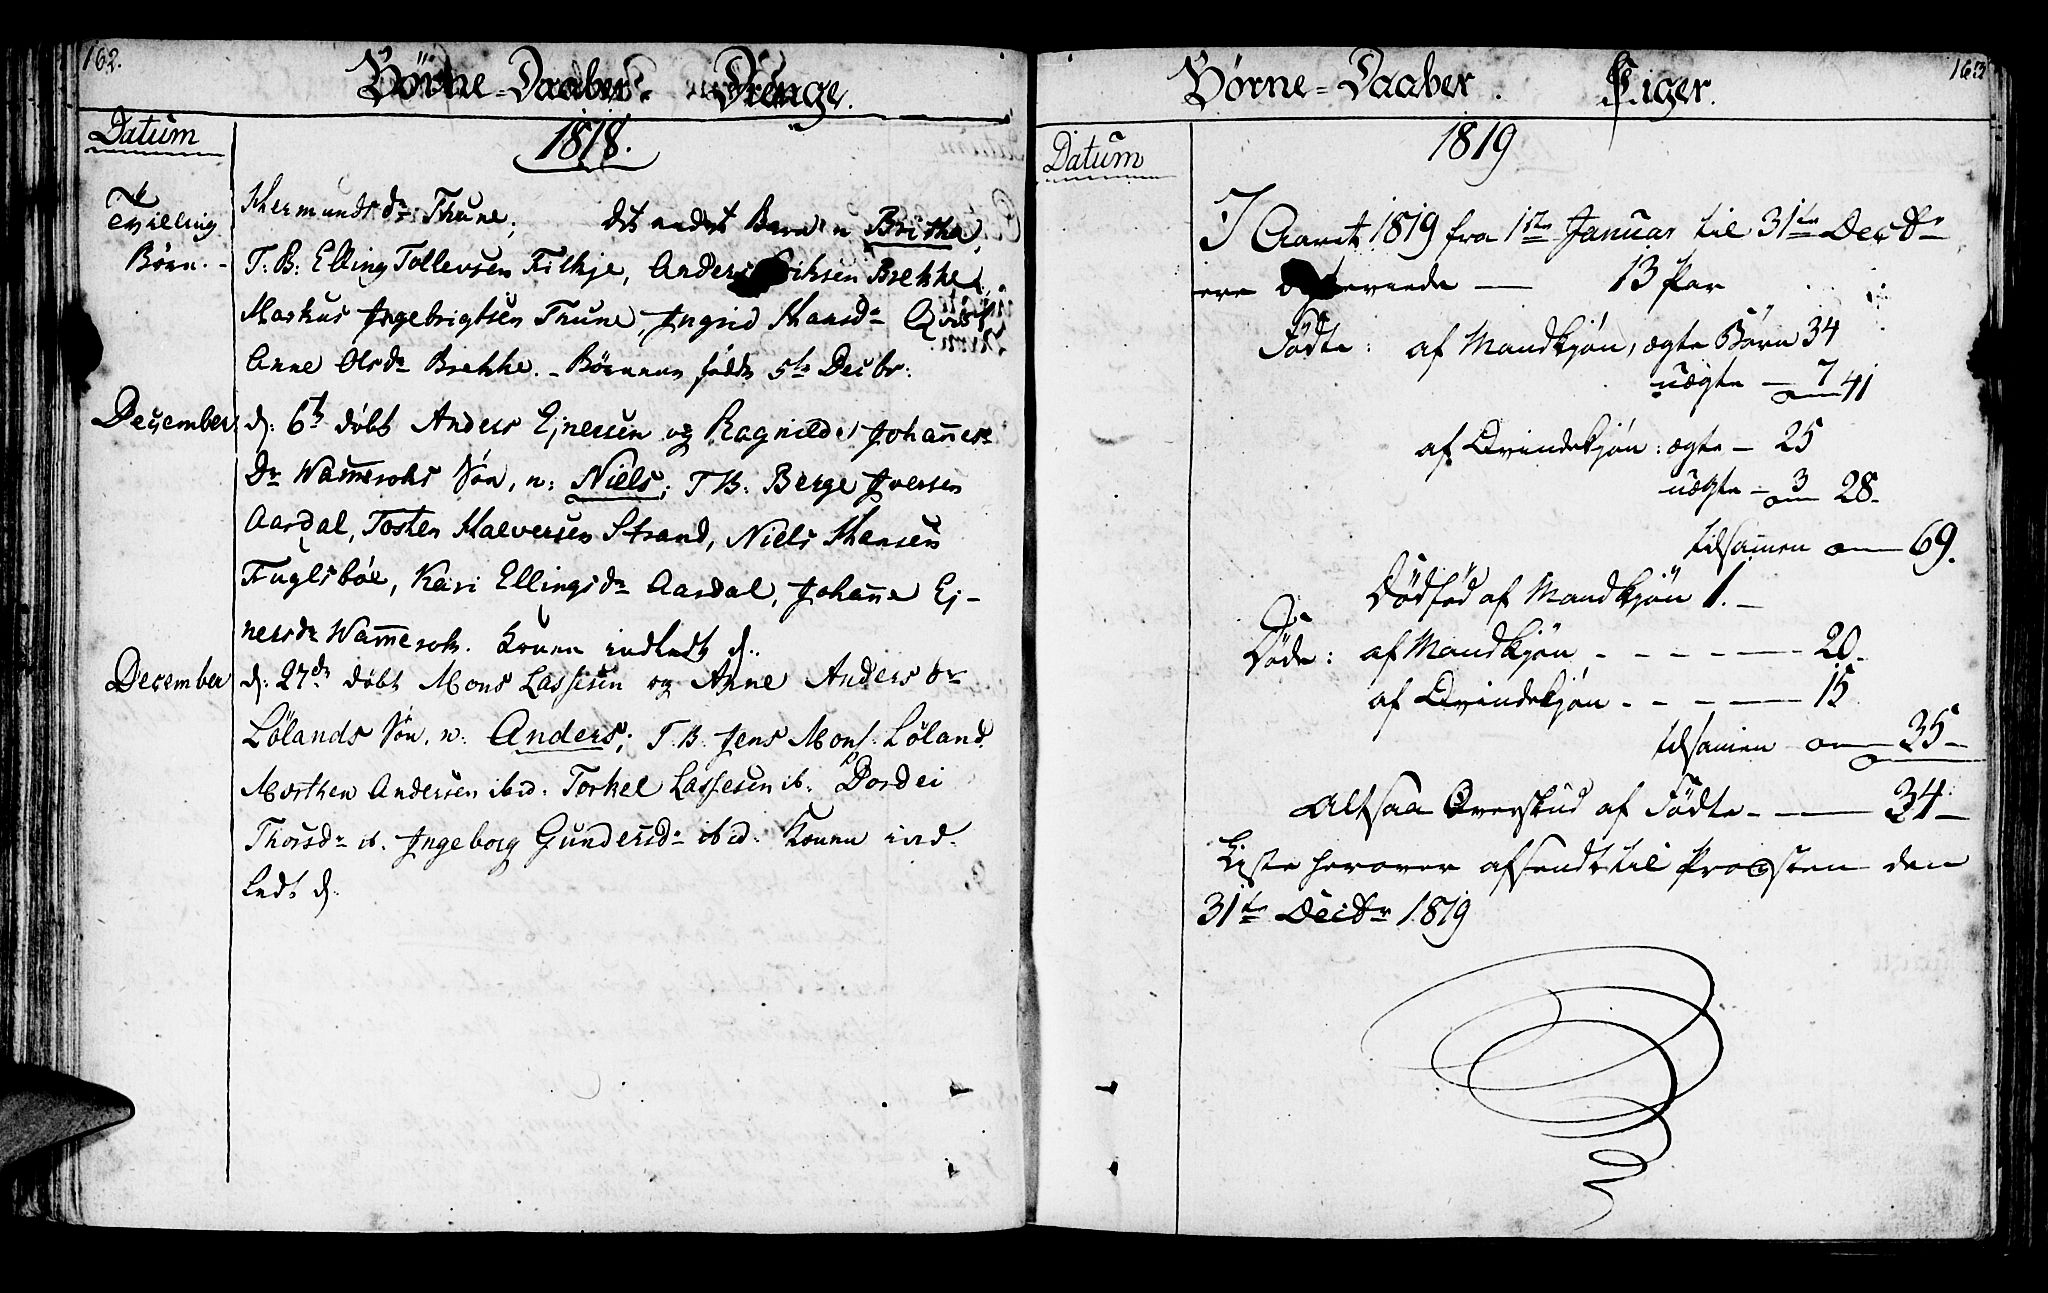 162.
Börne-Daaber. Drenge.
Datum
1818.
Tvilling
Børn.
Hermundsdr Thune; det andet Barn n Britha,
T: B: Elling Tollevsen Filkje, Anders Eriksen Brekke,
Markus Ingebrigtsen Thune, Ingrid Hansdr Qvist
Anne Olsdr Brekke. - Børnene fødde 5te Decbr:
December d: 6te døbt Anders Ejnersen og Ragnilde Johannes
Dr Wamesoks Søn, n: Niels; T B: Berge Iversen
Aardal, Tosten Halversen Strand, Niels Hansen
Fuglsbøe, Kari Ellingsdr Aardal, Johanne Ej-
nersdr Wamesok. Konen indledt d..
December d: 27de døbt Mons Lassesen og Anne Andersdr
Lölands Søn, n: Anders; T B: Jens Mons. Löland
Morthen Andersen ibid. Torkel Lassesen ib. Dordei
Thorsdr ib. Ingeborg Gundersdr ibid. Konen ind-
ledt d.
163
Börne-Daaber. Piger.
Datum
1819
I Aaret 1819 fra 1ste Januar til 31te Decbr
ere Copulerede — 13 Par
Födte: af Mandkjön, ægte Börn 34
uægte — 7 41
af Qvindekjön: ægte — 25
uægte — 3 28
tilsamen 69.
Dödfød af Mandkjön 1. —
Döde: af Mandkjön - - - - - 20.
af Qvindekjön - - - - 15
tilsamen 35-
Altsaa Overskud af Födte - — 34-
Liste herover afsendt til Provsten den
31te Decbr 1819